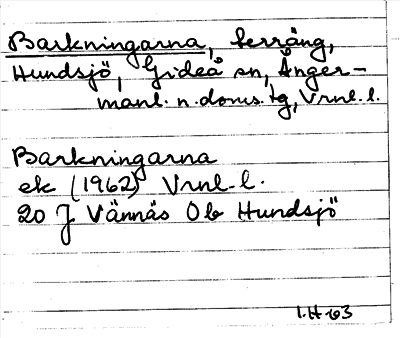 Barkningarna, terräng,
Hundsjö, Gideå sn, Ånger-
manl. n. doms. tg, Vrnl. l.
Barkningarna
ek (1962) Vrnl. l.
20 J Vännäs 0b Hundsjö
I.H-63